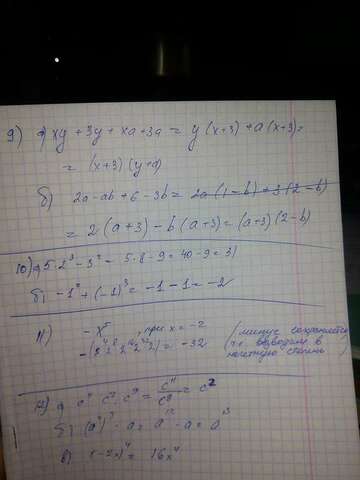 9) а) xy + 3y + xa + 3a = y(x+3) + a(x+3) =
= (x+3)(y+a)
б) 2a - ab + 6 - 3b = 2a(1-b) + 3(2-b)
= 2(a+3) - b(a+3) = (a+3)(2-b)
10) а) 5·2³ - 3² = 5·8 - 9 = 40 - 9 = 31
б) -1² + (-1)³ = -1 - 1 = -2
11) -x⁵, при x = -2
= -32
(минус сохраняется
т.к возводим в
нечетную степень)
12) а)
б)
в) (-2x)⁴ = 16x⁴